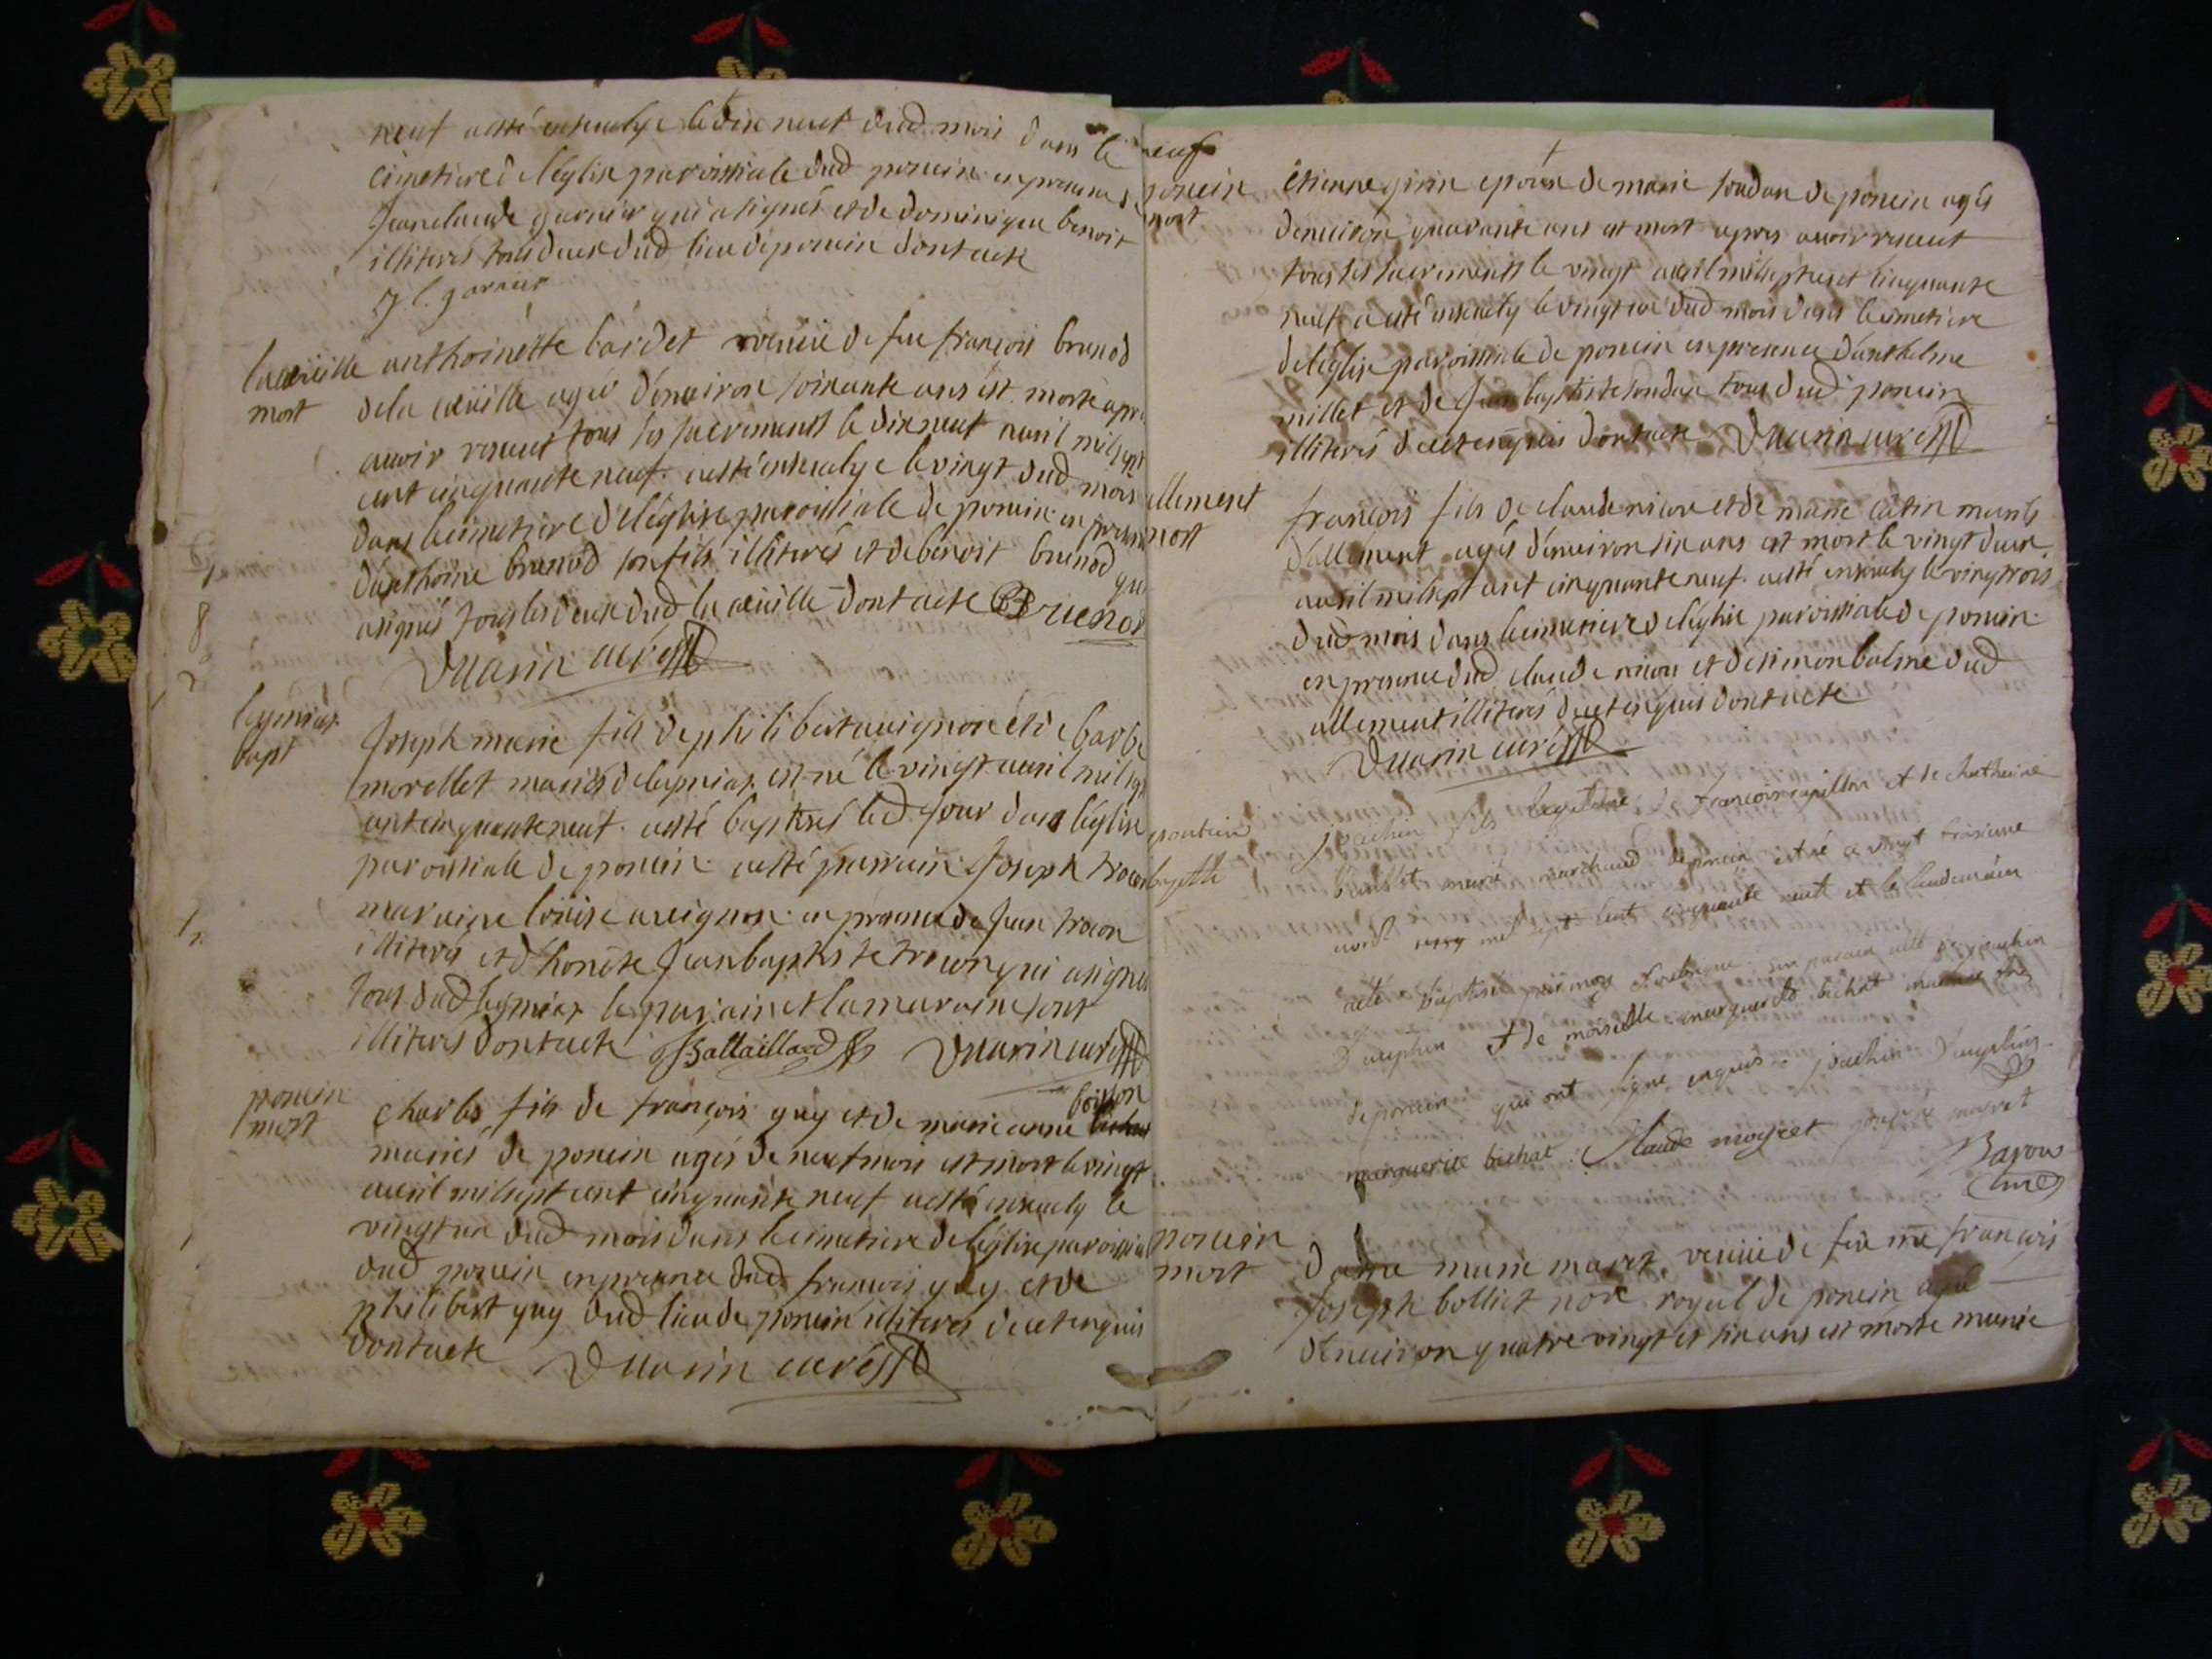 neuf a esté ensevelye le dix neuf dud mois dans le
cimetiere de l'église paroissiale dud poncin en presence de
Jean claude garnier qui a signés et de dominique benoit
illiterés tous deux dud lieu de poncin dont acte
J l. garnier
la cüeille mort
anthoinette bardet veuve de feu françois brunod
de la cüeille agée d'environ soixante ans est morte apres
avoir receut tous les sacrements le dix neuf avril mil sept
cent cinquante neuf. a esté ensevelye le vingt dud mois
dans le cimetiere de l'église paroissiale de poncin en presence
d'anthoine brunod son fils illiterés et de benoit brunod qui
a signés tous les deux dud la cüeille dont acte B Brunod
Duarin curé
leymiat
bapt
Joseph marie fils de philibert avignon et de barbe
morellet mariés de leymiat est né le vingt avril mil sept
cent cinquante neuf. a esté baptisés led. jour dans l'église
paroissiale de poncin a esté parrain Joseph trocon
maraine loüise avignon en presence de Jean trocon
illiterés et d'honête Jean baptiste trocon qui a signés
tous dud leymiat le parain et la maraine sont
illiterés dont acte Battaillard Duarin curé
poncin
mort
boisson
charles fils de françois guy et de marie anne
mariés de poncin agés de neuf mois est mort le vingt
avril mil sept cent cinquante neuf a esté ensevely le
vingt un dud mois dans le cimetiere de l'église paroissiale
dud poncin en presence dud françois guy et de
philibert guy dud lieu de poncin illiterés de ce enquis
dont acte Duarin curé
poncin
mort
étienne girin epoux de marie soudan de poncin agés
d'environ quarante ans est mort apres avoir receut
tous les sacrements le vingt avril mil sept cent cinquante
neuf a esté ensevely le vingt un dud mois dans le cimetiere
de l'église paroissiale de poncin en presence d'anthelme
millet et de Jean baptiste soudan tous dud poncin
illiterés de ce enquis dont acte Duarin curé
allement
mort
françois fils de claude et de marie catin mariés
d'allement agés d'environ six ans est mort le vingt deux
avril mil sept cent cinquante neuf. a esté ensevely le vingt trois
dud mois dans le cimetiere de l'église paroissiale de poncin
en presence dud claude et de simon balme dud
allement illiterés de ce enquis dont acte
Duarin curé
joachin fils legitime de françois et de chatherine
marié marchand de poncin est né ce vingt troisieme
avril mil sept cent cinquante neuf et le lendemain
a été baptisé par moy son parain été joachin
Dauphin et de moiselle marguerite bichat
de poncin qui ont signe enquis: joachin Dauphin
marguerite bichat. Claude moyret
Baron
Curé
poncin
mort
dame marie maret veuve de feu me françois
Joseph bolliet nore royal de poncin agée
d'environ quatre vingt et six ans est morte munie